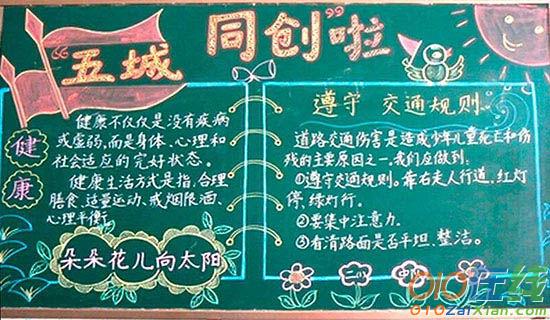 “五城同创”啦
健康
健康不仅仅是没有疾病
或虚弱,而是身体、心理和
社会适应的完好状态。
健康生活方式是指,合理
膳食、适量运动、戒烟限酒、
心理平衡。
朵朵花儿向太阳
遵守 交通规则。
道路交通伤害是造成少年儿童死亡和伤
残的主要原因之一,我们应做到:
①遵守交通规则。靠右走人行道,红灯
停,绿灯行。
②要集中注意力。
③看清路面是否平坦、整洁。
二〇 中
010在线
010zaixian.com